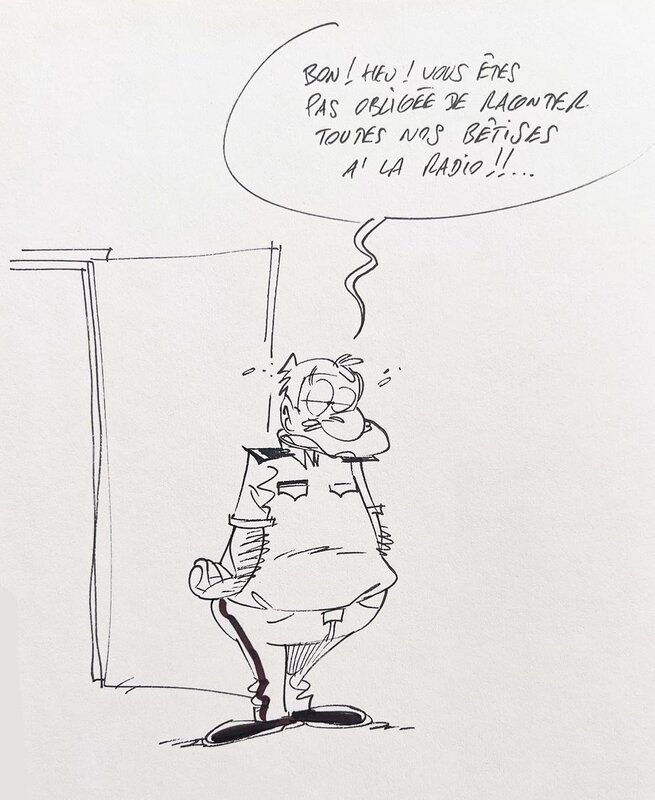 BON! HEU! VOUS ÊTES
PAS OBLIGÉE DE RACONTER
TOUTES NOS BÊTISES
A' LA RADIO!!...